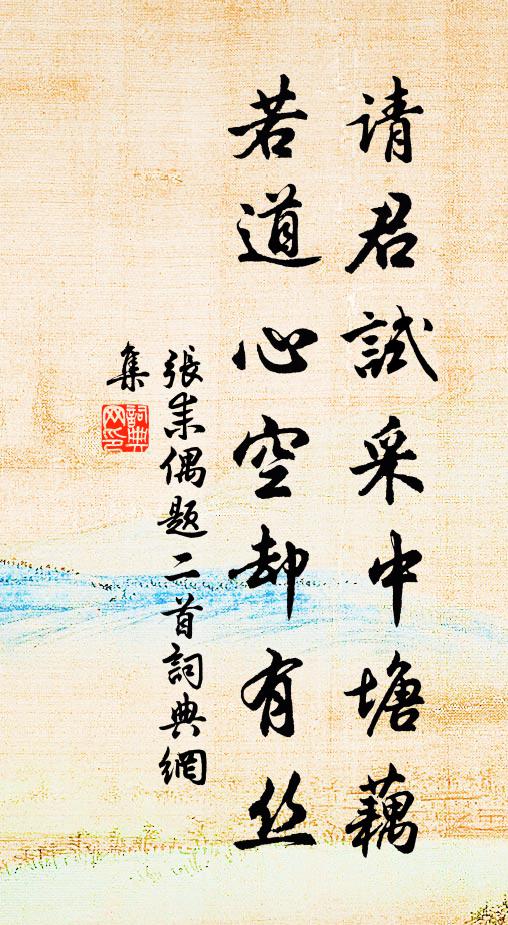 请君試采中塘藕
若道心空却有丝
張耒偶题二首詞典網
集
詞典网印